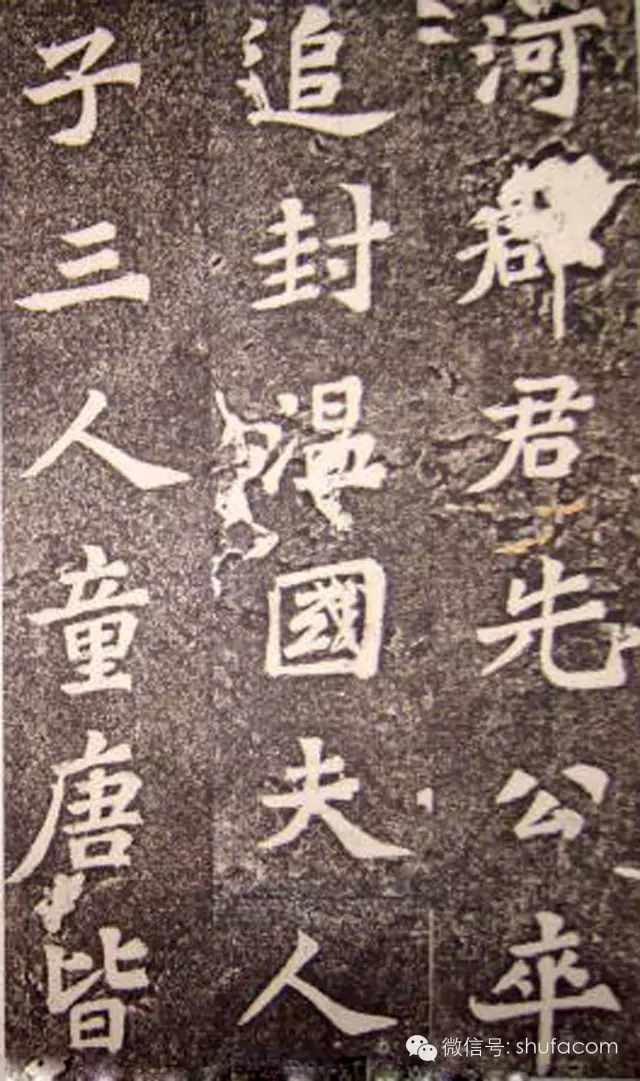 河郡君先公卒
追封温國夫人
子三人童唐皆
微信号: shufacom